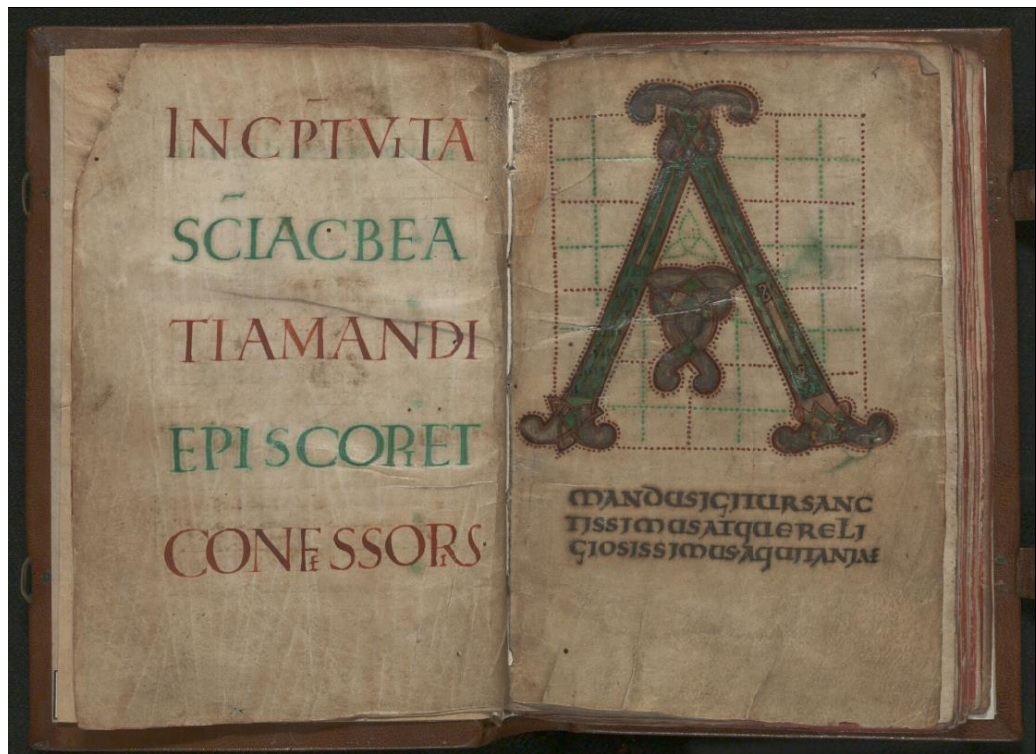 INCP̄TVITA
SC̄IACBEA
TIAMANDI
EPISCOPIET
CONFESSORIS·
A
MANDUSIGITURSANC
TISSIMUSATQUERELI
GIOSISSIMUSAQUITANIAE